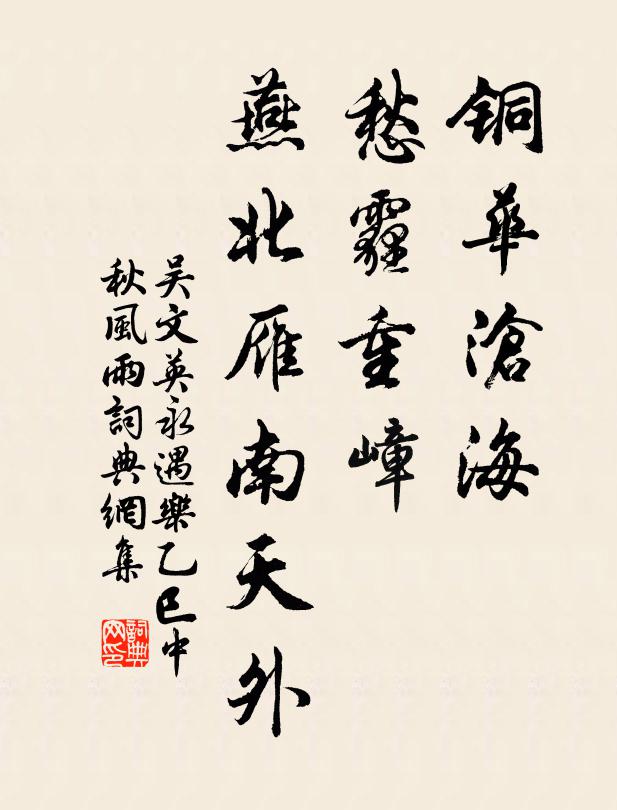 銅華滄海
愁霾重嶂
燕北雁南天外
吴文英永遇樂乙巳中
秋風雨詞典網集
詞典網印